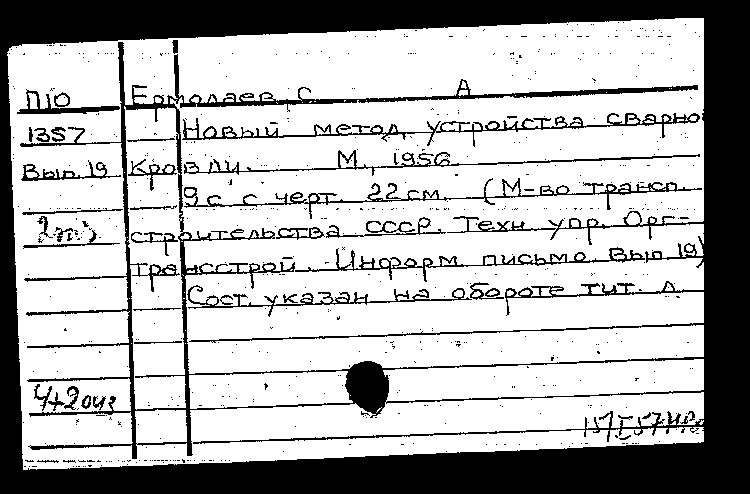 П10 Ермолаев, С А
1357 Новый метод устройства сварно
Вып. 19 Кровли. М., 1956
9 с с черт. 22 см. (М-во трансп.
строительства СССР. Техн упр. Орг-
трансстрой. Информ. письмо. Вып 19)
Сост. указан на обороте тит. л.
4+2 очз